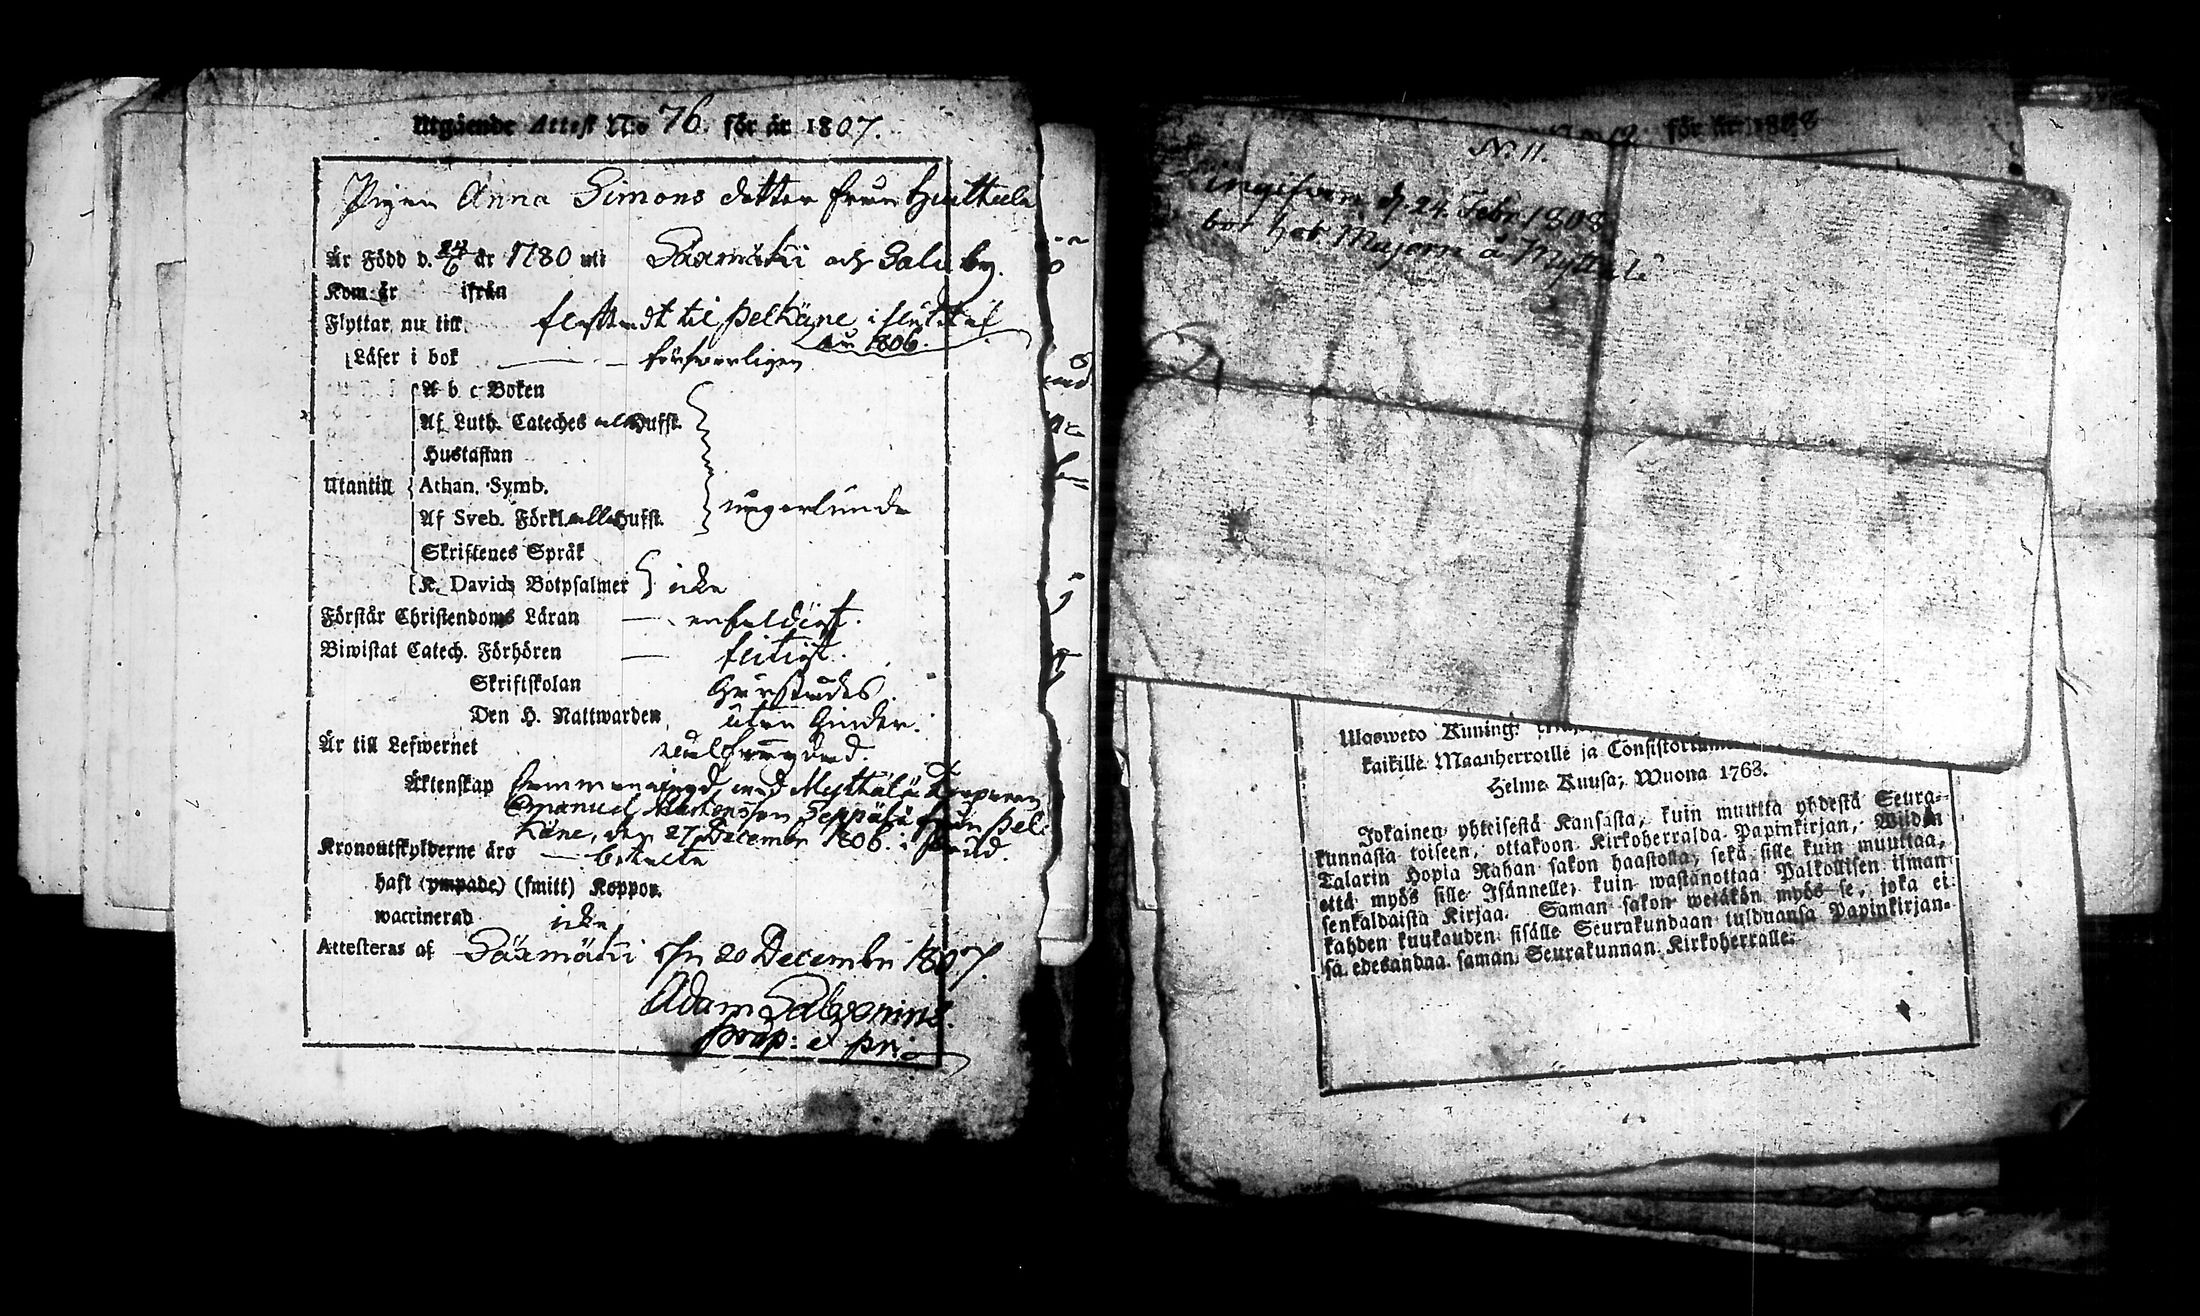 Utgående Attest N:o 76. för år 1807.
Pigan Anna Simons dotter från Huittula
Är Född d. 24/6 år 1780 uti Sääxmäki och Salu by.
Kom år ifrån
Flyttar nu till flyttadt til Pelkäne i slutet af
år 1806.
Läser i bok — — förswarligen
A b c Boken
Af Luth. Cateches alla Hufst.
Hustaflan
Utantill Athan. Symb.
Af Sveb. Förkl. alla Hufst. någorlunda
Skriftenes Språk
K. Davids Botpsalmer icke
Förstår Christendoms Läran — enfaldigt.
Biwistat Catech. Förhören — flitigt.
Skriftskolan
Den H. Nattwarden utan hinder.
Är till Lefwernet wälfrägdad.
Äktenskap med Myttälä
Emanuel Mårtensson Seppälä från Pel-
käne, den 27 Decembr 1806. i
Kronoutskylderne äro — betalte
haft (ympade) (smitt) Koppor.
waccinerad icke
Attesteras af Sääxmäki d. 20 Decembr 1807.
Adam
prap: & pr:
för år 1808
N. 11.
Ingifven d. 24. Febr. 1808
bor hos Majorn å Myttälä
Ulosweto Kuning:
kaikille Maanherroille ja Consistoriumeille
Helme Kuusa, Wuona 1763.
Jokainen yhteisestä Kansasta, kuin muutta yhdestä Seura-
kunnasta toiseen, ottakoon Kirkoherralda Papinkirjan, Wiiden
Talarin Hopia Rahan sakon haastolla, sekä sille kuin muuttaa,
että myös sille Isännelle, kuin wastanottaa Palkollisen ilman
senkaldaista Kirjaa. Saman sakon wetäkön myös se, joka ei
kahden kuukauden sisälle Seurakundaan tulduansa Papinkirjan-
sa edesandaa saman Seurakunnan Kirkoherralle.